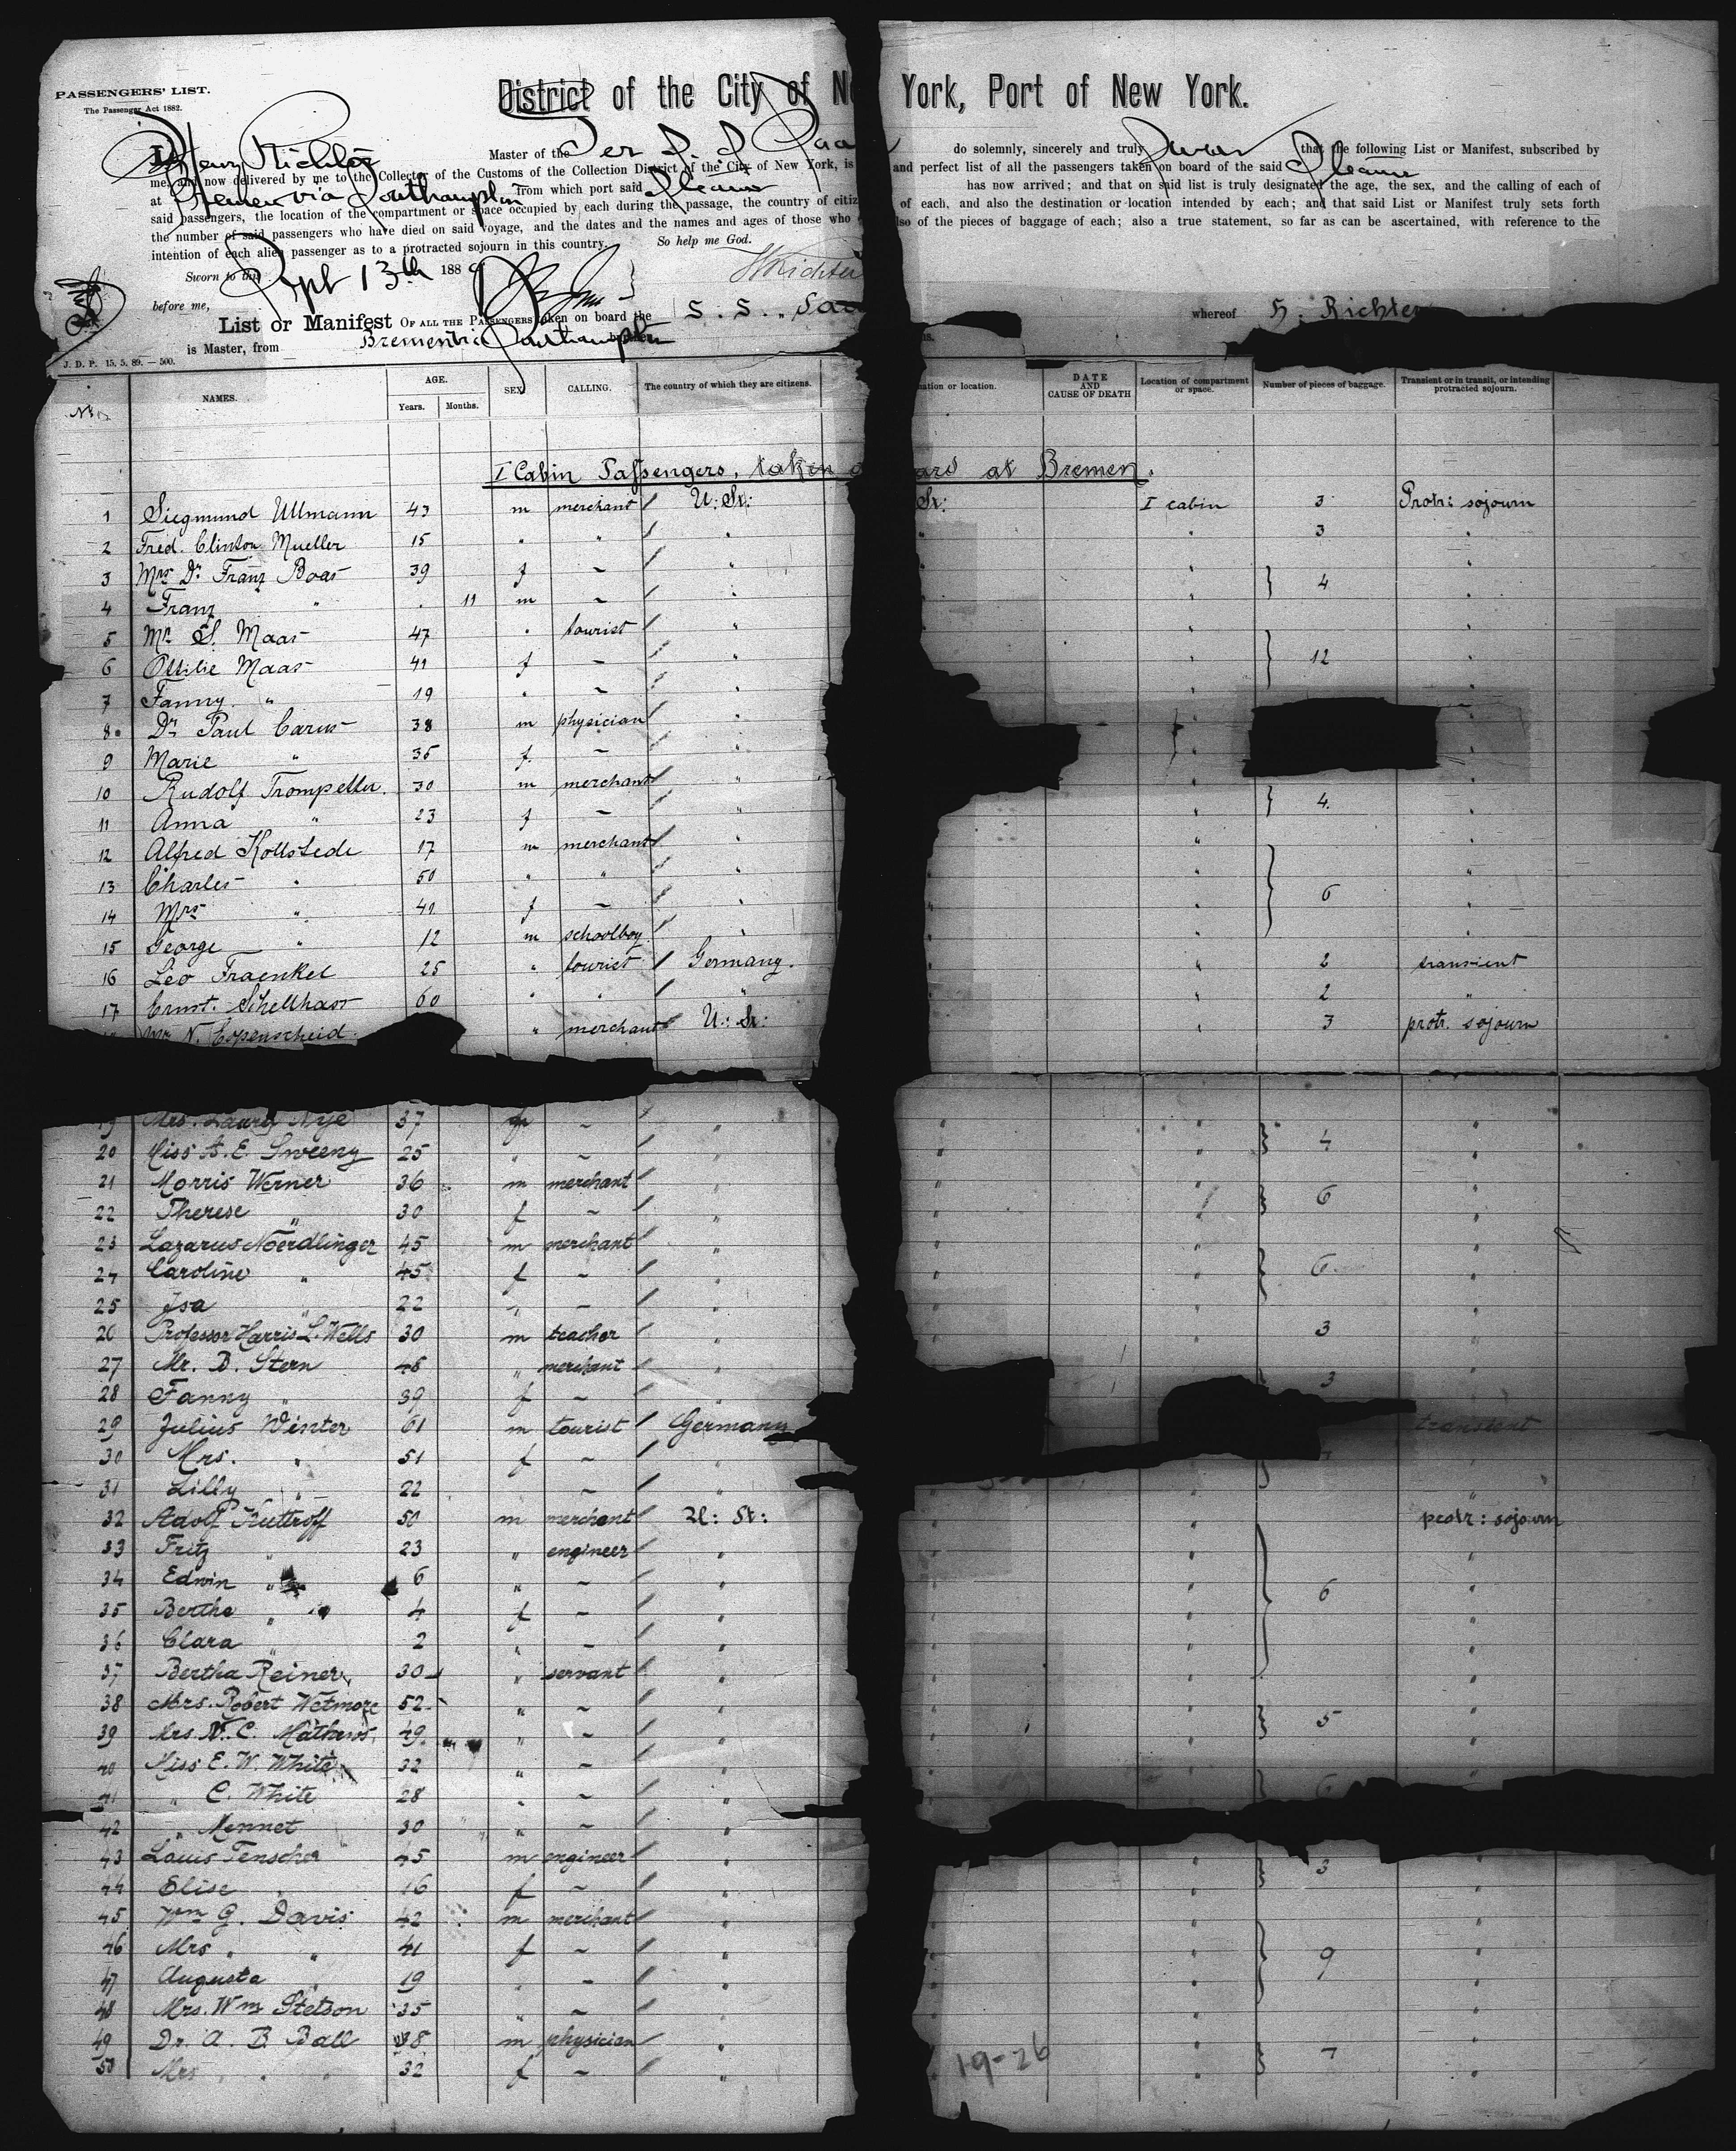 PASSENGERS' LIST.
The Passenger Act 1882.
District of the City of Ne York, Port of New York.
I, Henry Richter Master of the Ger. S. S. Saa do solemnly, sincerely and truly swear that the following List or Manifest, subscribed by
me, and now delivered by me to the Collector of the Customs of the Collection District of the City of New York, is and perfect list of all the passengers taken on board of the said Steamer
at Bremen via Southampton from which port said Steamer has now arrived; and that on said list is truly designated the age, the sex, and the calling of each of
said passengers, the location of the compartment or space occupied by each during the passage, the country of citiz of each, and also the destination or location intended by each; and that said List or Manifest truly sets forth
the number of said passengers who have died on said voyage, and the dates and the names and ages of those who lso of the pieces of baggage of each; also a true statement, so far as can be ascertained, with reference to the
intention of each alien passenger as to a protracted sojourn in this country. So help me God.
Sworn to this Sept 13th 188 HRichter
before me,
List or Manifest OF ALL THE PASSENGERS taken on board the S. S. „Saa whereof H. Richter
is Master, from Bremen via Southampton
J. D. P. 15. 5. 89. — 500.
No. NAMES. AGE. Years. Months. SEX. CALLING. The country of which they are citizens. nation or location. DATE AND CAUSE OF DEATH Location of compartment or space. Number of pieces of baggage. Transient or in transit, or intending protracted sojourn.
I Cabin Passengers, taken o ard at Bremen.
1 Siegmund Ullmann 43 m merchant / U: St: St: I cabin 3 Protr: sojourn
2 Fred. Clinton Mueller 15 " " / " " 3 "
3 Mrs Dr Franz Boas 39 f – / " " } 4 "
4 Franz " . 11 m – / " " "
5 Mr. S. Maas 47 " tourist / " " "
6 Ottilie Maas 41 f – / " " } 12 "
7 Fanny " 19 " – / " " "
8 Dr Paul Carus 38 m physician / " "
9 Marie " 35 f – / " "
10 Rudolf Trompetter. 30 m merchant / " " } 4. "
11 Anna " 23 f – / " " "
12 Alfred Kollstede 17 m merchant / " " "
13 Charles " 50 " " / " " "
14 Mrs " 41 f – / " " } 6 "
15 George " 12 m schoolboy / " " "
16 Leo Fraenkel 25 " tourist / Germany. " 2 transient
17 Ernst. Schellhass 60 " " / " " 2 "
Mr N. Espenscheid " merchant U: St: " 3 protr. sojourn
19 Mrs. Laura Nye 37 f – / " "
20 Miss A. E. Sweeny 25 " – / " " } 4 "
21 Morris Werner 36 m merchant / " "
22 Therese " 30 f – / " " } 6 "
23 Lazarus Noerdlinger 45 m merchant / " " "
24 Caroline " 45 f – / " " } 6 "
25 Isa " 22 " – / " " "
26 Professor Harris L. Wells 30 m teacher / " " 3 "
27 Mr. B. Stern 48 " merchant / " "
28 Fanny " 39 f – / " } 3
29 Julius Winter 61 m tourist / Germany transient
30 Mrs. " 51 f – / "
31 Lilly " 22 " – / " " "
32 Adolf Kuttroff 50 m merchant / U: St: " protr: sojourn
33 Fritz " 23 " engineer / " " "
34 Edwin " 6 " – / " " } 6 "
35 Bertha " 4 f – / " " "
36 Clara " 2 " – / " " "
37 Bertha Reiner 30 " servant / " " "
38 Mrs. Robert Wetmore 52 " – / " " "
39 Mrs. N. C. Mathews. 49 " – / " " } 5 "
40 Miss E. W. White 32 " – / " " "
41 " C. White 28 " – / " " } 6 "
42 " Mennet 30 " – / "
43 Louis Tenscher 45 m engineer / " " } 3 "
44 Elise " 16 f – / " " "
45 Wm G. Davis 42 m merchant / " " "
46 Mrs " " 41 f – / " " } 9 "
47 Augusta " 19 " – / " " "
48 Mrs. Wm Stetson 35 " – / " " "
49 Dr. A. B. Ball 38 m physician / " " "
50 Mrs " " 32 f – / " " } 7 "
19-26